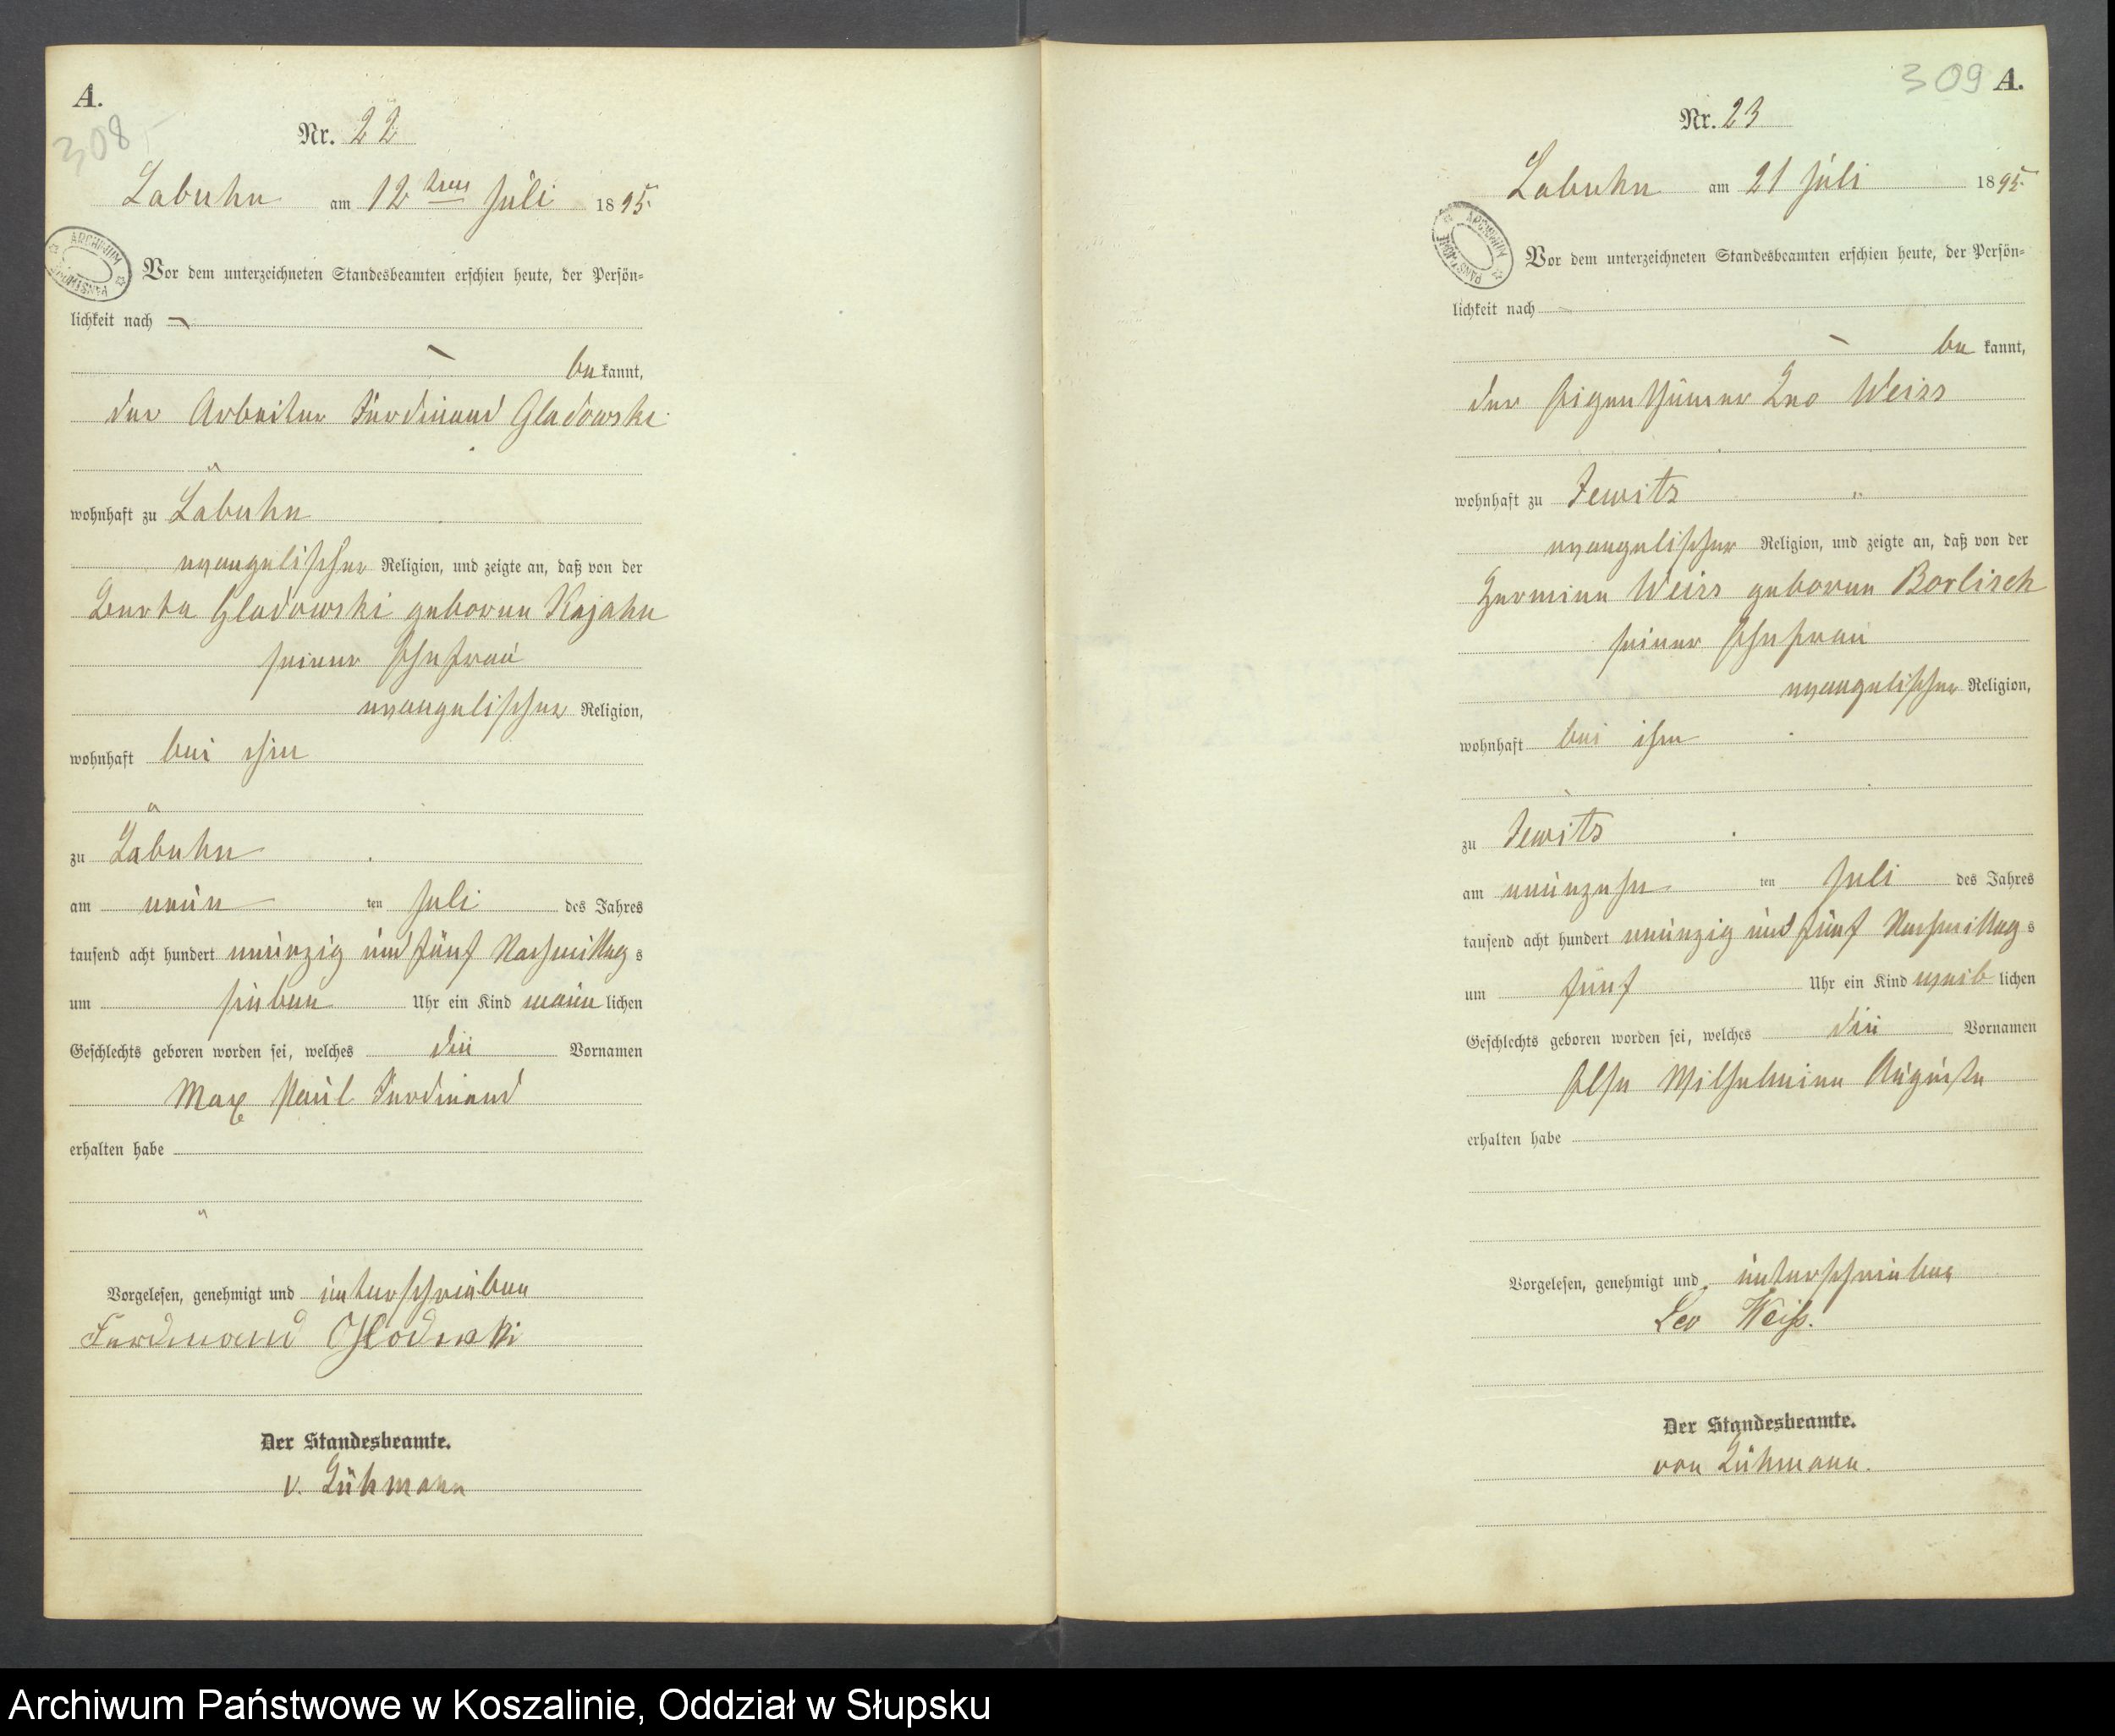 A.
308
Nr. 22
Labuhn am 12 ten Juli 1895.
ARCHIWUM PAŃSTWOWE
Vor dem unterzeichneten Standesbeamten erschien heute, der Persön-
lichkeit nach
be kannt,
der Arbeiter Ferdinand Gladowski
wohnhaft zu Labuhn
evangelischer Religion, und zeigte an, daß von der
Berta Gladowski geborene Kajahn
seiner Ehefrau
evangelischer Religion,
wohnhaft bei ihm
zu Labuhn
am neun ten Juli des Jahres
tausend acht hundert neunzig und fünf Nachmittag s
um sieben Uhr ein Kind männ lichen
Geschlechts geboren worden sei, welches die Vornamen
Max Paul Ferdinand
erhalten habe
Vorgelesen, genehmigt und unterschrieben
Ferdinand
Der Standesbeamte.
v. Lühmann
309 A.
Nr. 23
Labuhn am 21 Juli 1895.
ARCHIWUM PAŃSTWOWE
Vor dem unterzeichneten Standesbeamten erschien heute, der Persön-
lichkeit nach
be kannt,
der Eigenthümer Leo Weiss
wohnhaft zu Jewitz
evangelischer Religion, und zeigte an, daß von der
Hermine Weiss geborene Borlisch
seiner Ehefrau
evangelischer Religion,
wohnhaft bei ihm
zu Jewitz
am neunzehn ten Juli des Jahres
tausend acht hundert neunzig und fünf Nachmittag s
um fünf Uhr ein Kind weib lichen
Geschlechts geboren worden sei, welches die Vornamen
Else Wilhelmine Auguste
erhalten habe
Vorgelesen, genehmigt und unterschrieben
Leo Weiß.
Der Standesbeamte.
von Lühmann.
Archiwum Państwowe w Koszalinie, Oddział w Słupsku